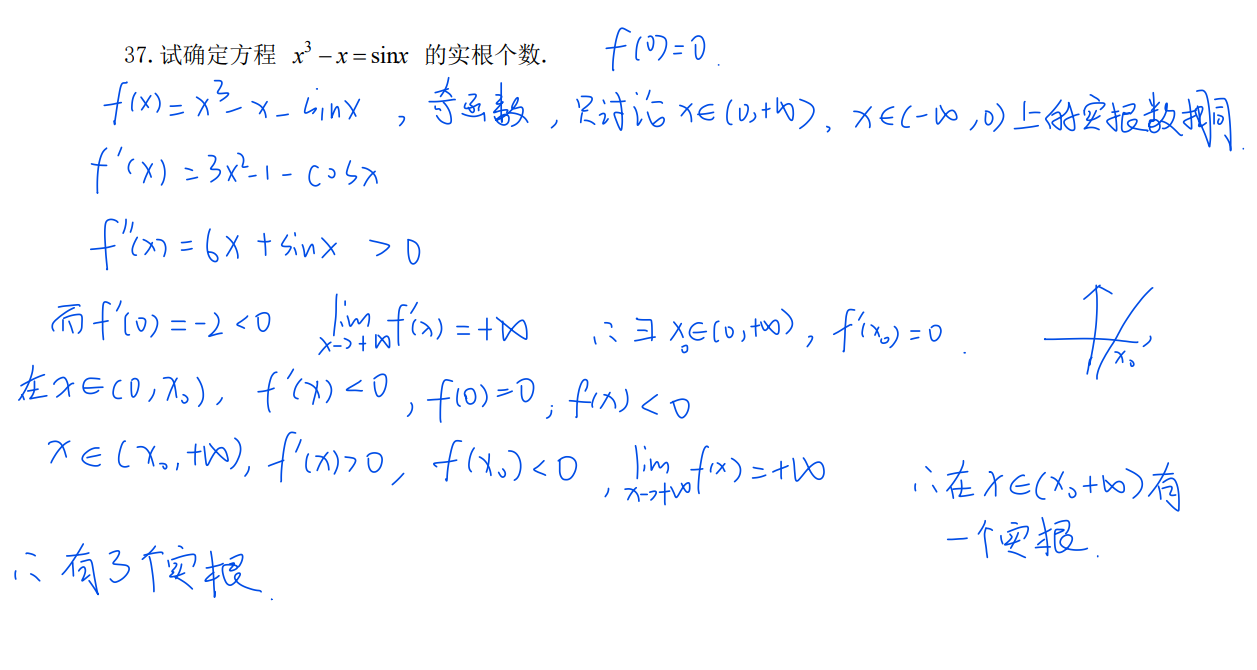 37. 试确定方程 x³ − x = sinx 的实根个数. f(0)=0.
f(x) = x³ − x − sinx , 奇函数 , 只讨论 x∈(0,+∞), x∈(-∞,0)上的实根数相同.
f'(x) = 3x²-1-cosx
f''(x) = 6x + sinx > 0
而 f'(0) = -2 < 0 lim x->+∞ f'(x) = +∞ ∴∃ x₀∈(0,+∞), f'(x₀)=0.
x₀
在x∈(0,x₀), f'(x)<0 , f(0)=0, f(x)<0
x∈(x₀,+∞), f'(x)>0, f(x₀)<0 , lim x->+∞ f(x)=+∞ ∴在x∈(x₀+∞)有
一个实根.
∴ 有3个实根.